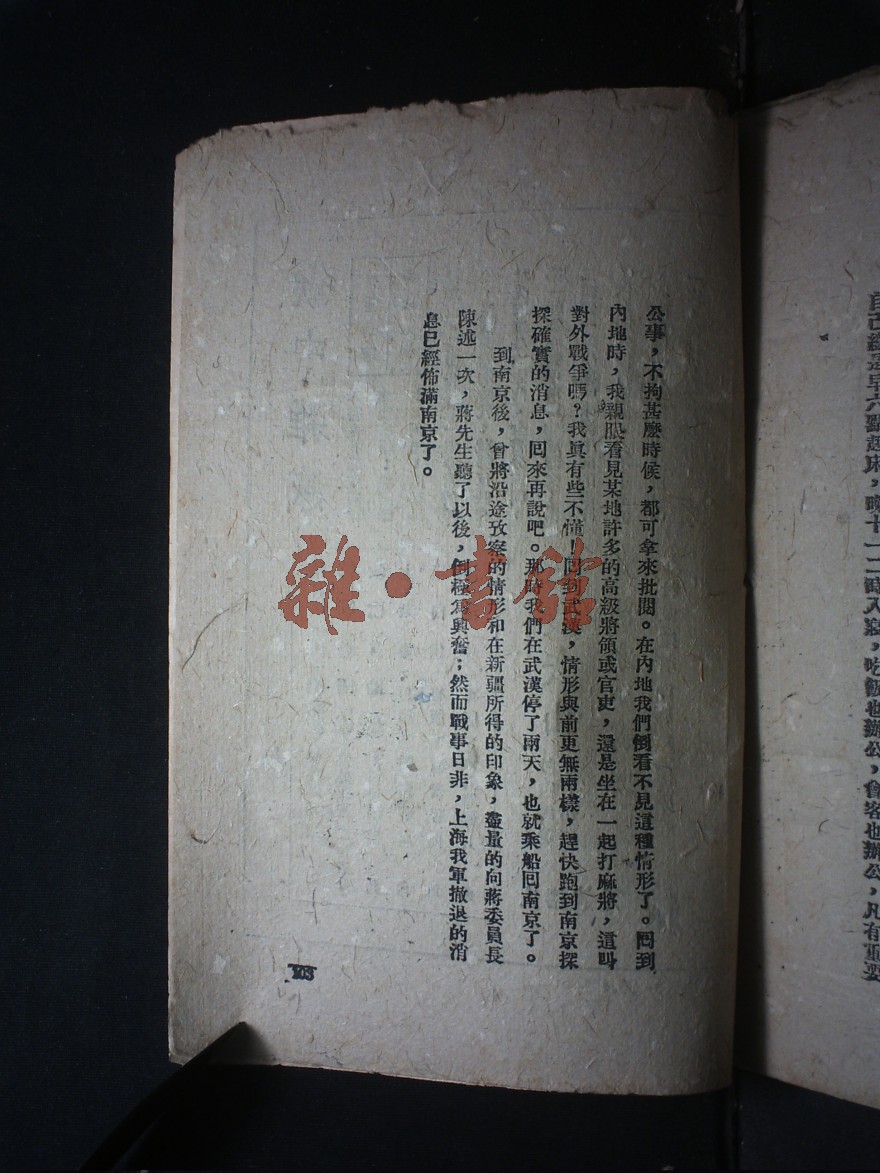 自己總是早六點起床，晚十一二時入寢，吃飯也辦公，會客也辦公，凡有重要
公事，不拘甚麼時候，都可拿來批閱。在內地我們倒看不見這種情形了。回到
內地時，我親眼看見某地許多的高級將領或官吏，還是坐在一起打麻將，這叫
對外戰爭嗎？我眞有些不懂！回到武漢，情形與前更無兩樣，趕快跑到南京探
探確實的消息，回來再說吧。那時我們在武漢停了兩天，也就乘船回南京了。
到南京後，曾將沿途攷察的情形和在新疆所得的印象，盡量的向蔣委員長
陳述一次，蔣先生聽了以後，倒極爲興奮；然而戰事日非，上海我軍撤退的消
息已經佈滿南京了。
雜·書館